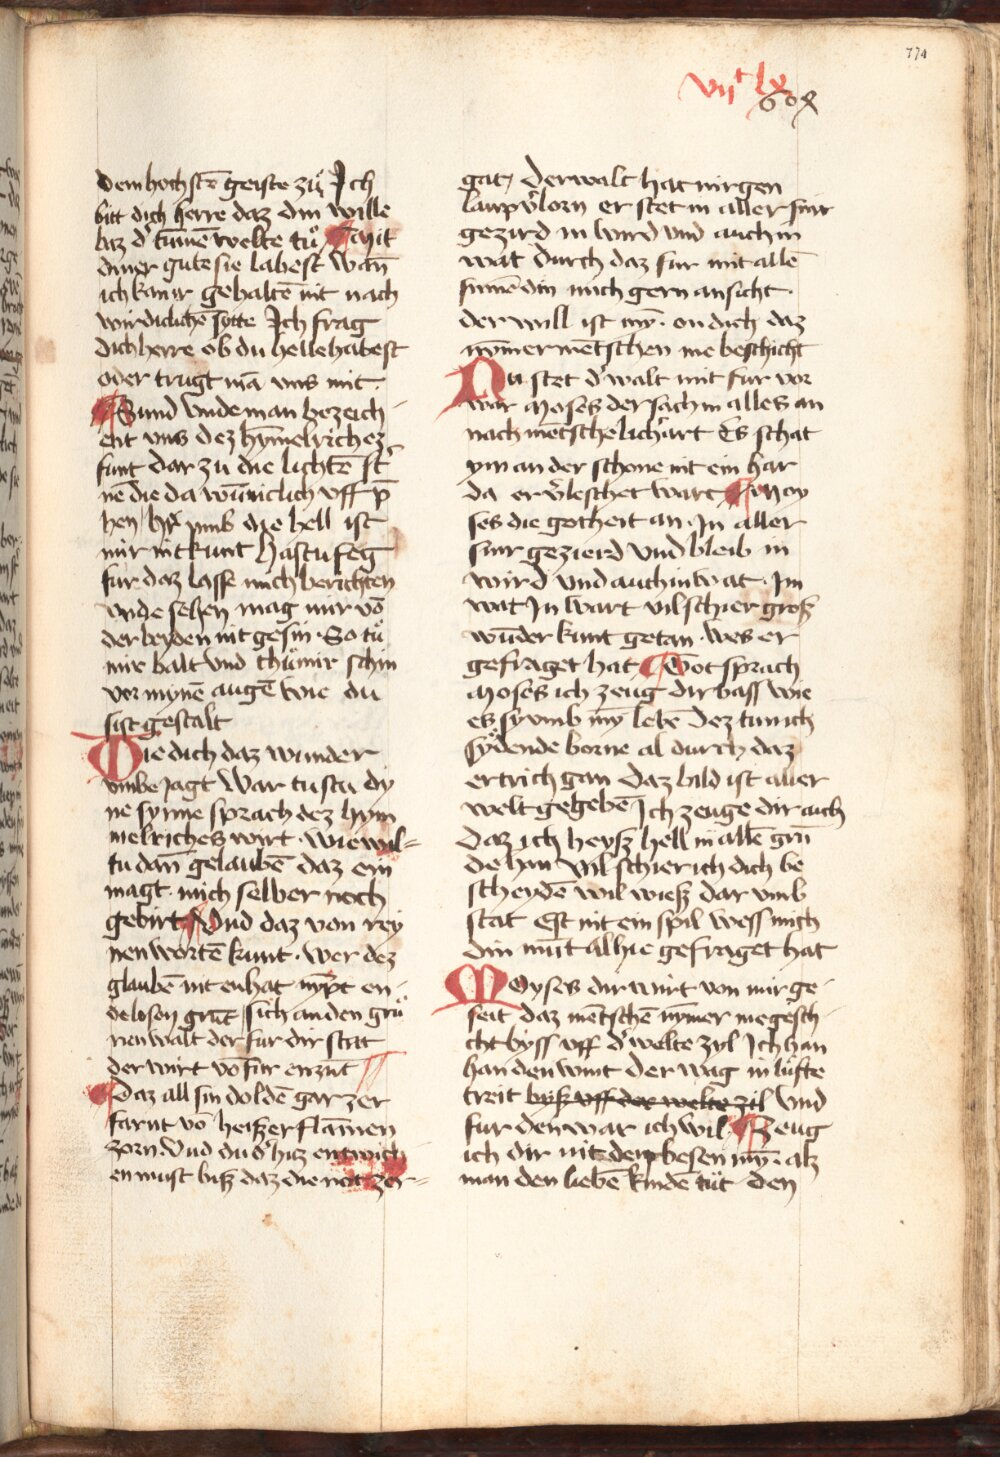 774
vijt lx
60x
dem hochstē geiste zů Ich
bitt dich herre daz din wille
laz d' tūmē welte tů Mit
diner gute sie labest wan̄
ich kan ir gehaltē nit nach
wirdiclichē sytte Ich frag
dich herre ob du helle habest
oder trugt mā vns mit.
Sund vnde man bezeich
ent vns dez hȳmelrichez
funt dar zu die lichtē st'
ne die da wūniclich vff p̄
hen vmb die hell ist
mir nit kunt hastu feg
fur daz lasse mich berichten
vnde sehen mag mir vō
der beyden nit gesin. So tů
mir balt vnd thů mir schin
vor mynē augē wie du
sist gestalt
Wie dich daz wunder
vmbe jagt War tustu dy
ne synne sprach dez hym
melriches wirt. wie wil
tu dan̄ gelaubē daz ein
magt. mich selber noch
gebirt Vnd daz von rey
nen wortē kunt. wer dez
glaubē nit enhat en
delosen grūt sich an den grů
nen walt der fur dir stat
der wirt vō fur enzūt
Daz all sin doldē gar zer
farnt vō heisser flam̄en
zorn. Vnd du d' hitz entwich
en must bisz daz die not zer
gat, der walt hat nirgen
laup v'lorn er stet in aller sinr
gezird in wird vnd auch in
wat durch daz fur mit allē
sinnē din mich gern ansicht.
der will ist mȳ. on dich daz
nȳmer mētschen me beschicht
Nu stet d' walt mit fur vor
war Moses der sach in alles an
nach mētschelich' art Es schat
ym an der schone nit ein har
da er v'leschet wart Moy
ses die gotheit an. In aller
sinr gezierd vnd bleib in
wird vnd auch in wat. Im
wat In wart vil schier grosz
wūder kunt getan. wes er
gefraget hat Got sprach
Moses ich zeug dir bass wie
es sy vmb mȳ lebē Dez tun ich
sydende borne al durch daz
ertrich gan daz bild ist aller
welt gegebē Ich zeuge dir auch
Daz ich heysz hell in allē grū
de hin Vil schier ich dich be
scheydē wil wiesz dar vmb
stat Est nit ein spil wess mich
din mūt alhie gefraget hat
Moyses dir wirt von mir ge
seit daz mētschē nȳmer me gesch
icht byss vff d' welte zyl Ich han
han den wint der wag in lüfte
treit bysz vff der welte zil Vnd
fur den war ich wil. Zeug
ich dir mit dem besen mȳ. alz
man den liebē kindē tůt den